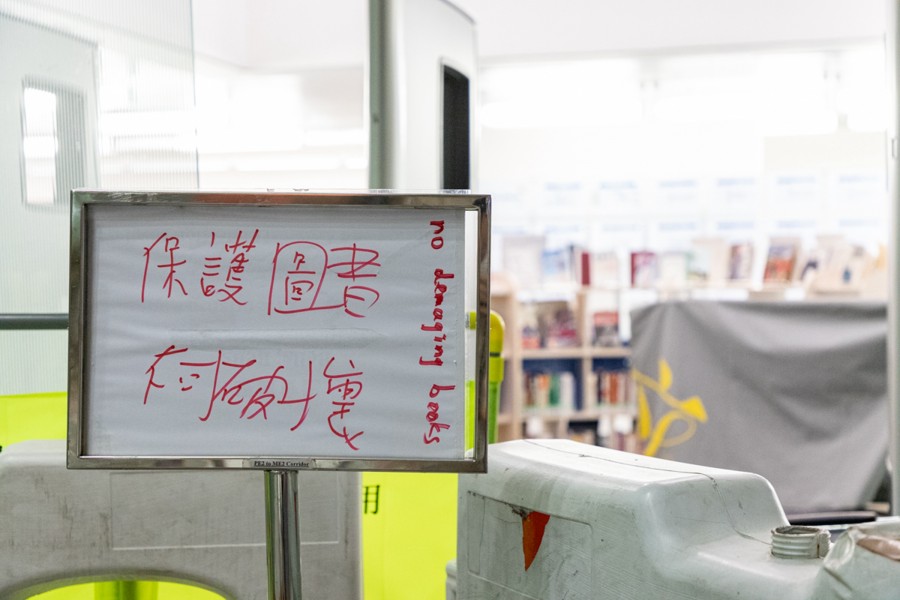 保護圖書
不可破壞
no demaging books
PE2 to ME2 Corridor
用